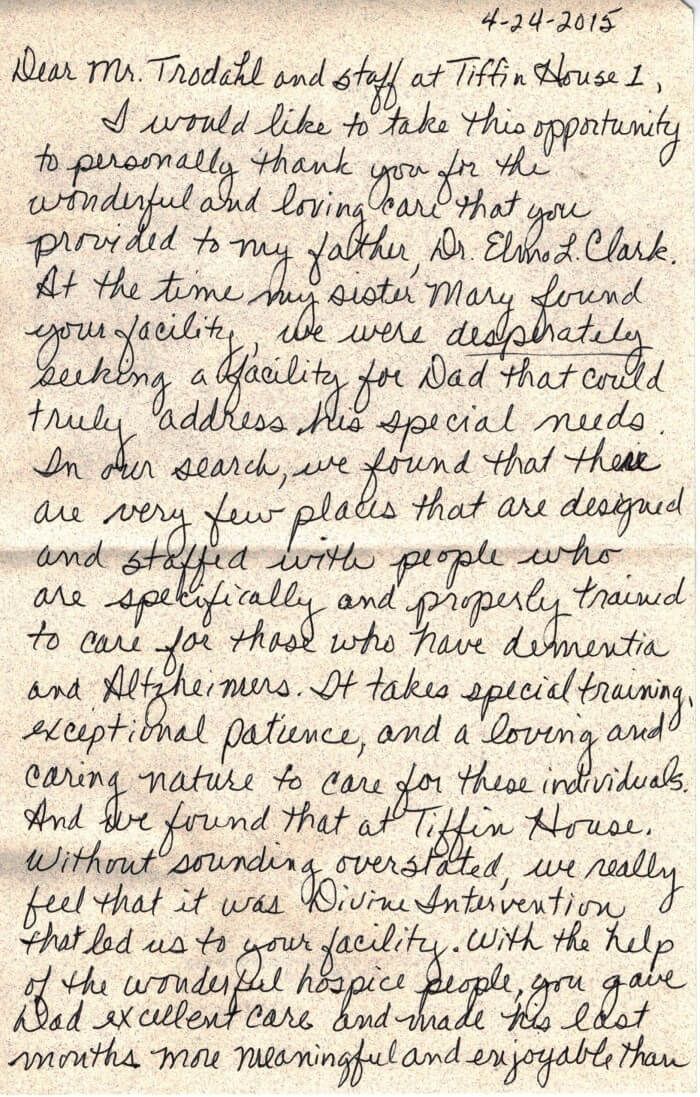 4-24-2015
Dear Mr. Trodahl and staff at Tiffin House 1,
I would like to take this opportunity
to personally thank you for the
wonderful and loving care that you
provided to my father, Dr. Elmo L. Clark.
At the time my sister Mary found
your facility, we were desperately
seeking a facility for Dad that could
truly address his special needs.
In our search, we found that there
are very few places that are designed
and staffed with people who
are specifically and properly trained
to care for those who have dementia
and Altzheimers. It takes special training,
exceptional patience, and a loving and
caring nature to care for these individuals.
And we found that at Tiffin House.
Without sounding overstated, we really
feel that it was Divine Intervention
that led us to your facility. With the help
of the wonderful hospice people, you gave
Dad excellent care and made his last
months more meaningful and enjoyable than